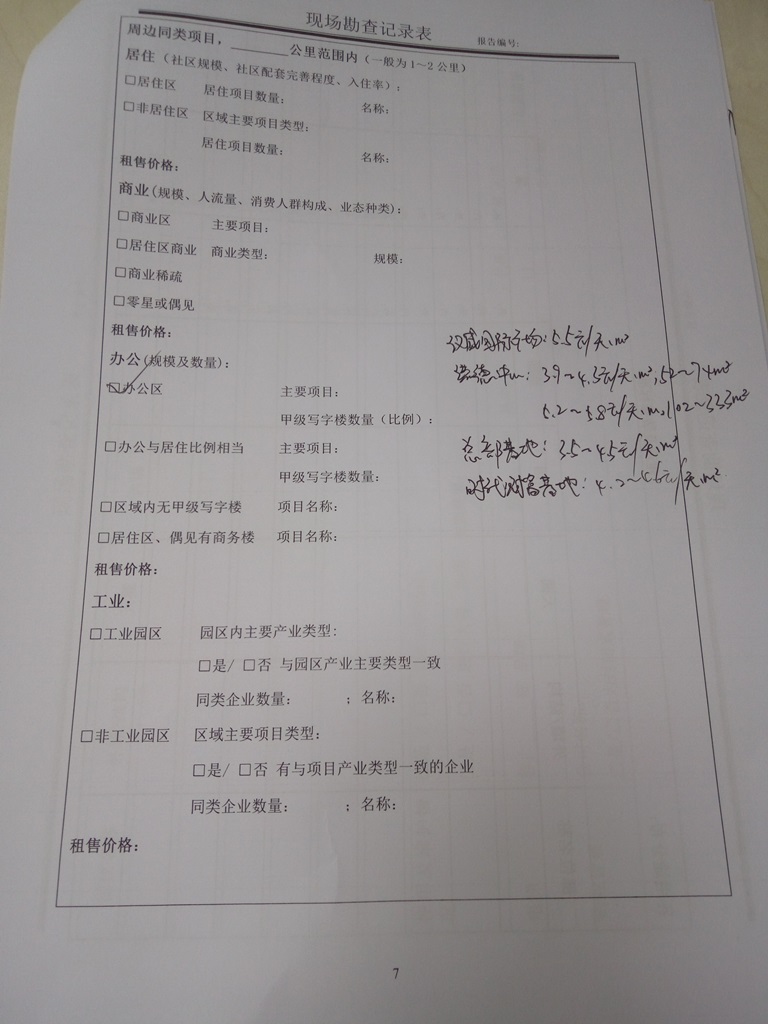 现场勘查记录表
报告编号:
周边同类项目，______公里范围内（一般为1～2公里）
居住（社区规模、社区配套完善程度、入住率）:
□居住区 居住项目数量: 名称:
□非居住区 区域主要项目类型:
居住项目数量: 名称:
租售价格:
商业(规模、人流量、消费人群构成、业态种类):
□商业区 主要项目:
□居住区商业 商业类型: 规模:
□商业稀疏
□零星或偶见
租售价格:
汉威国际广场: 5.5元/天.m²
办公(规模及数量):
3.9～4.5元/天.m², 52～74m²
☑办公区 主要项目:
甲级写字楼数量（比例）:
5.8元/天.m, 102～333m²
□办公与居住比例相当 主要项目:
总部基地: 3.5～4.5元/天.m²
甲级写字楼数量:
时代财富基地: 4.2～4.6元/天.m²
□区域内无甲级写字楼 项目名称:
□居住区、偶见有商务楼 项目名称:
租售价格:
工业:
□工业园区 园区内主要产业类型:
□是/ □否 与园区产业主要类型一致
同类企业数量: ；名称:
□非工业园区 区域主要项目类型:
□是/ □否 有与项目产业类型一致的企业
同类企业数量: ；名称:
租售价格:
7